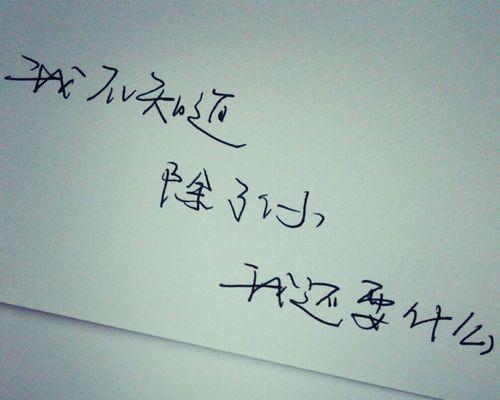 我不知道
除了你
我还要什么